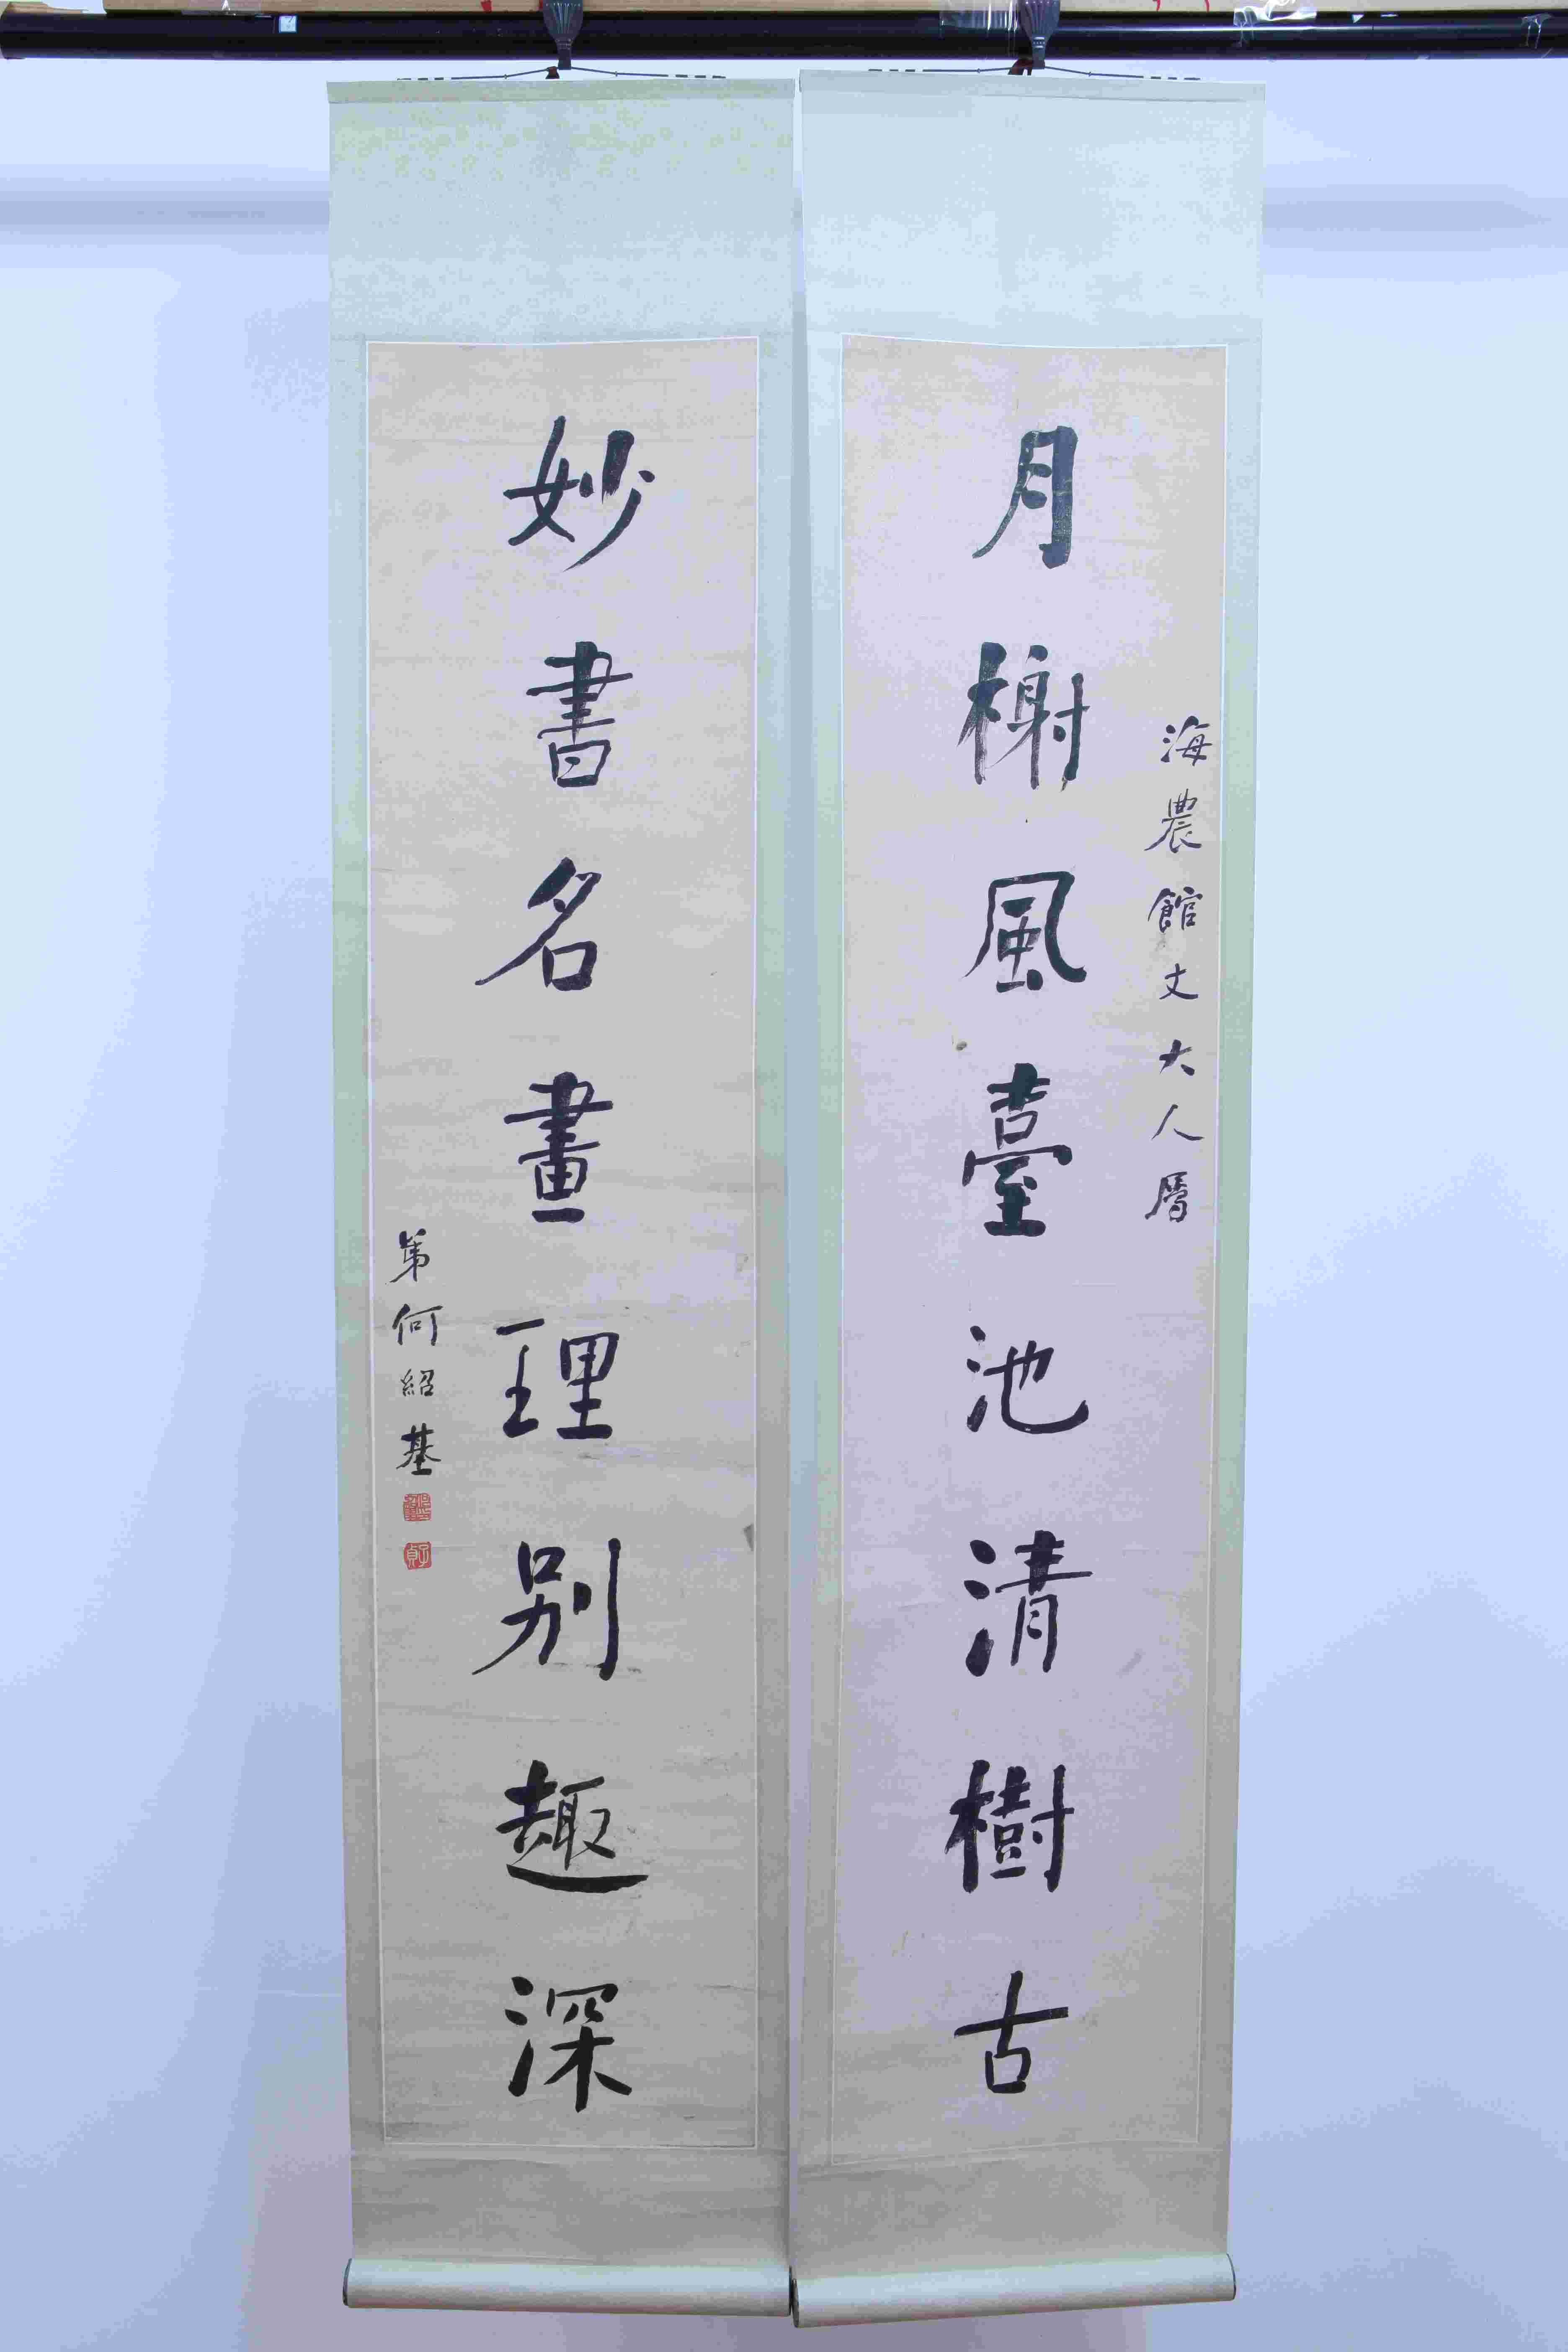 海農館丈大人屬
月榭風臺池清樹古
妙書名畫理別趣深
弟何紹基
子貞